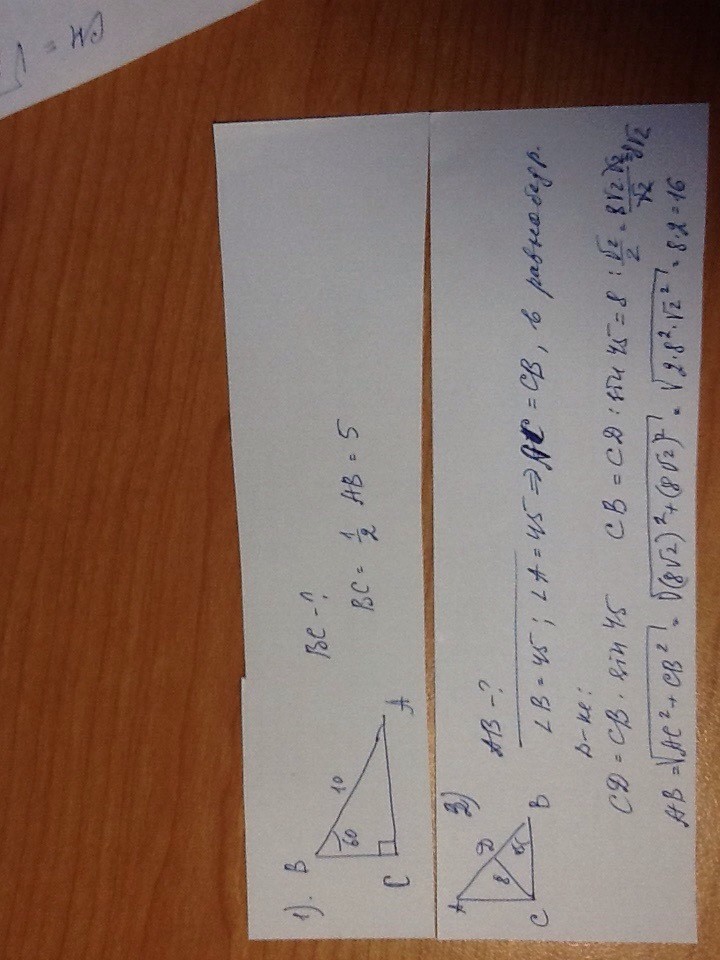 CM = √
1). B
10
60
C
A
BC - ?
BC = 1/2 AB = 5
2)
A
D
8
45
C
B
AB - ?
∠B = 45; ∠A = 45 ⇒ AC = CB, в равнобедр.
D-ке:
CD = CB · sin 45 CB = CD : sin 45 = 8 : √2/2 = 8√2·√2/√2 = 8√2
AB = √(AC² + CB²) = √((8√2)² + (8√2)²) = √(2·8²·√2²) = 8·2 = 16